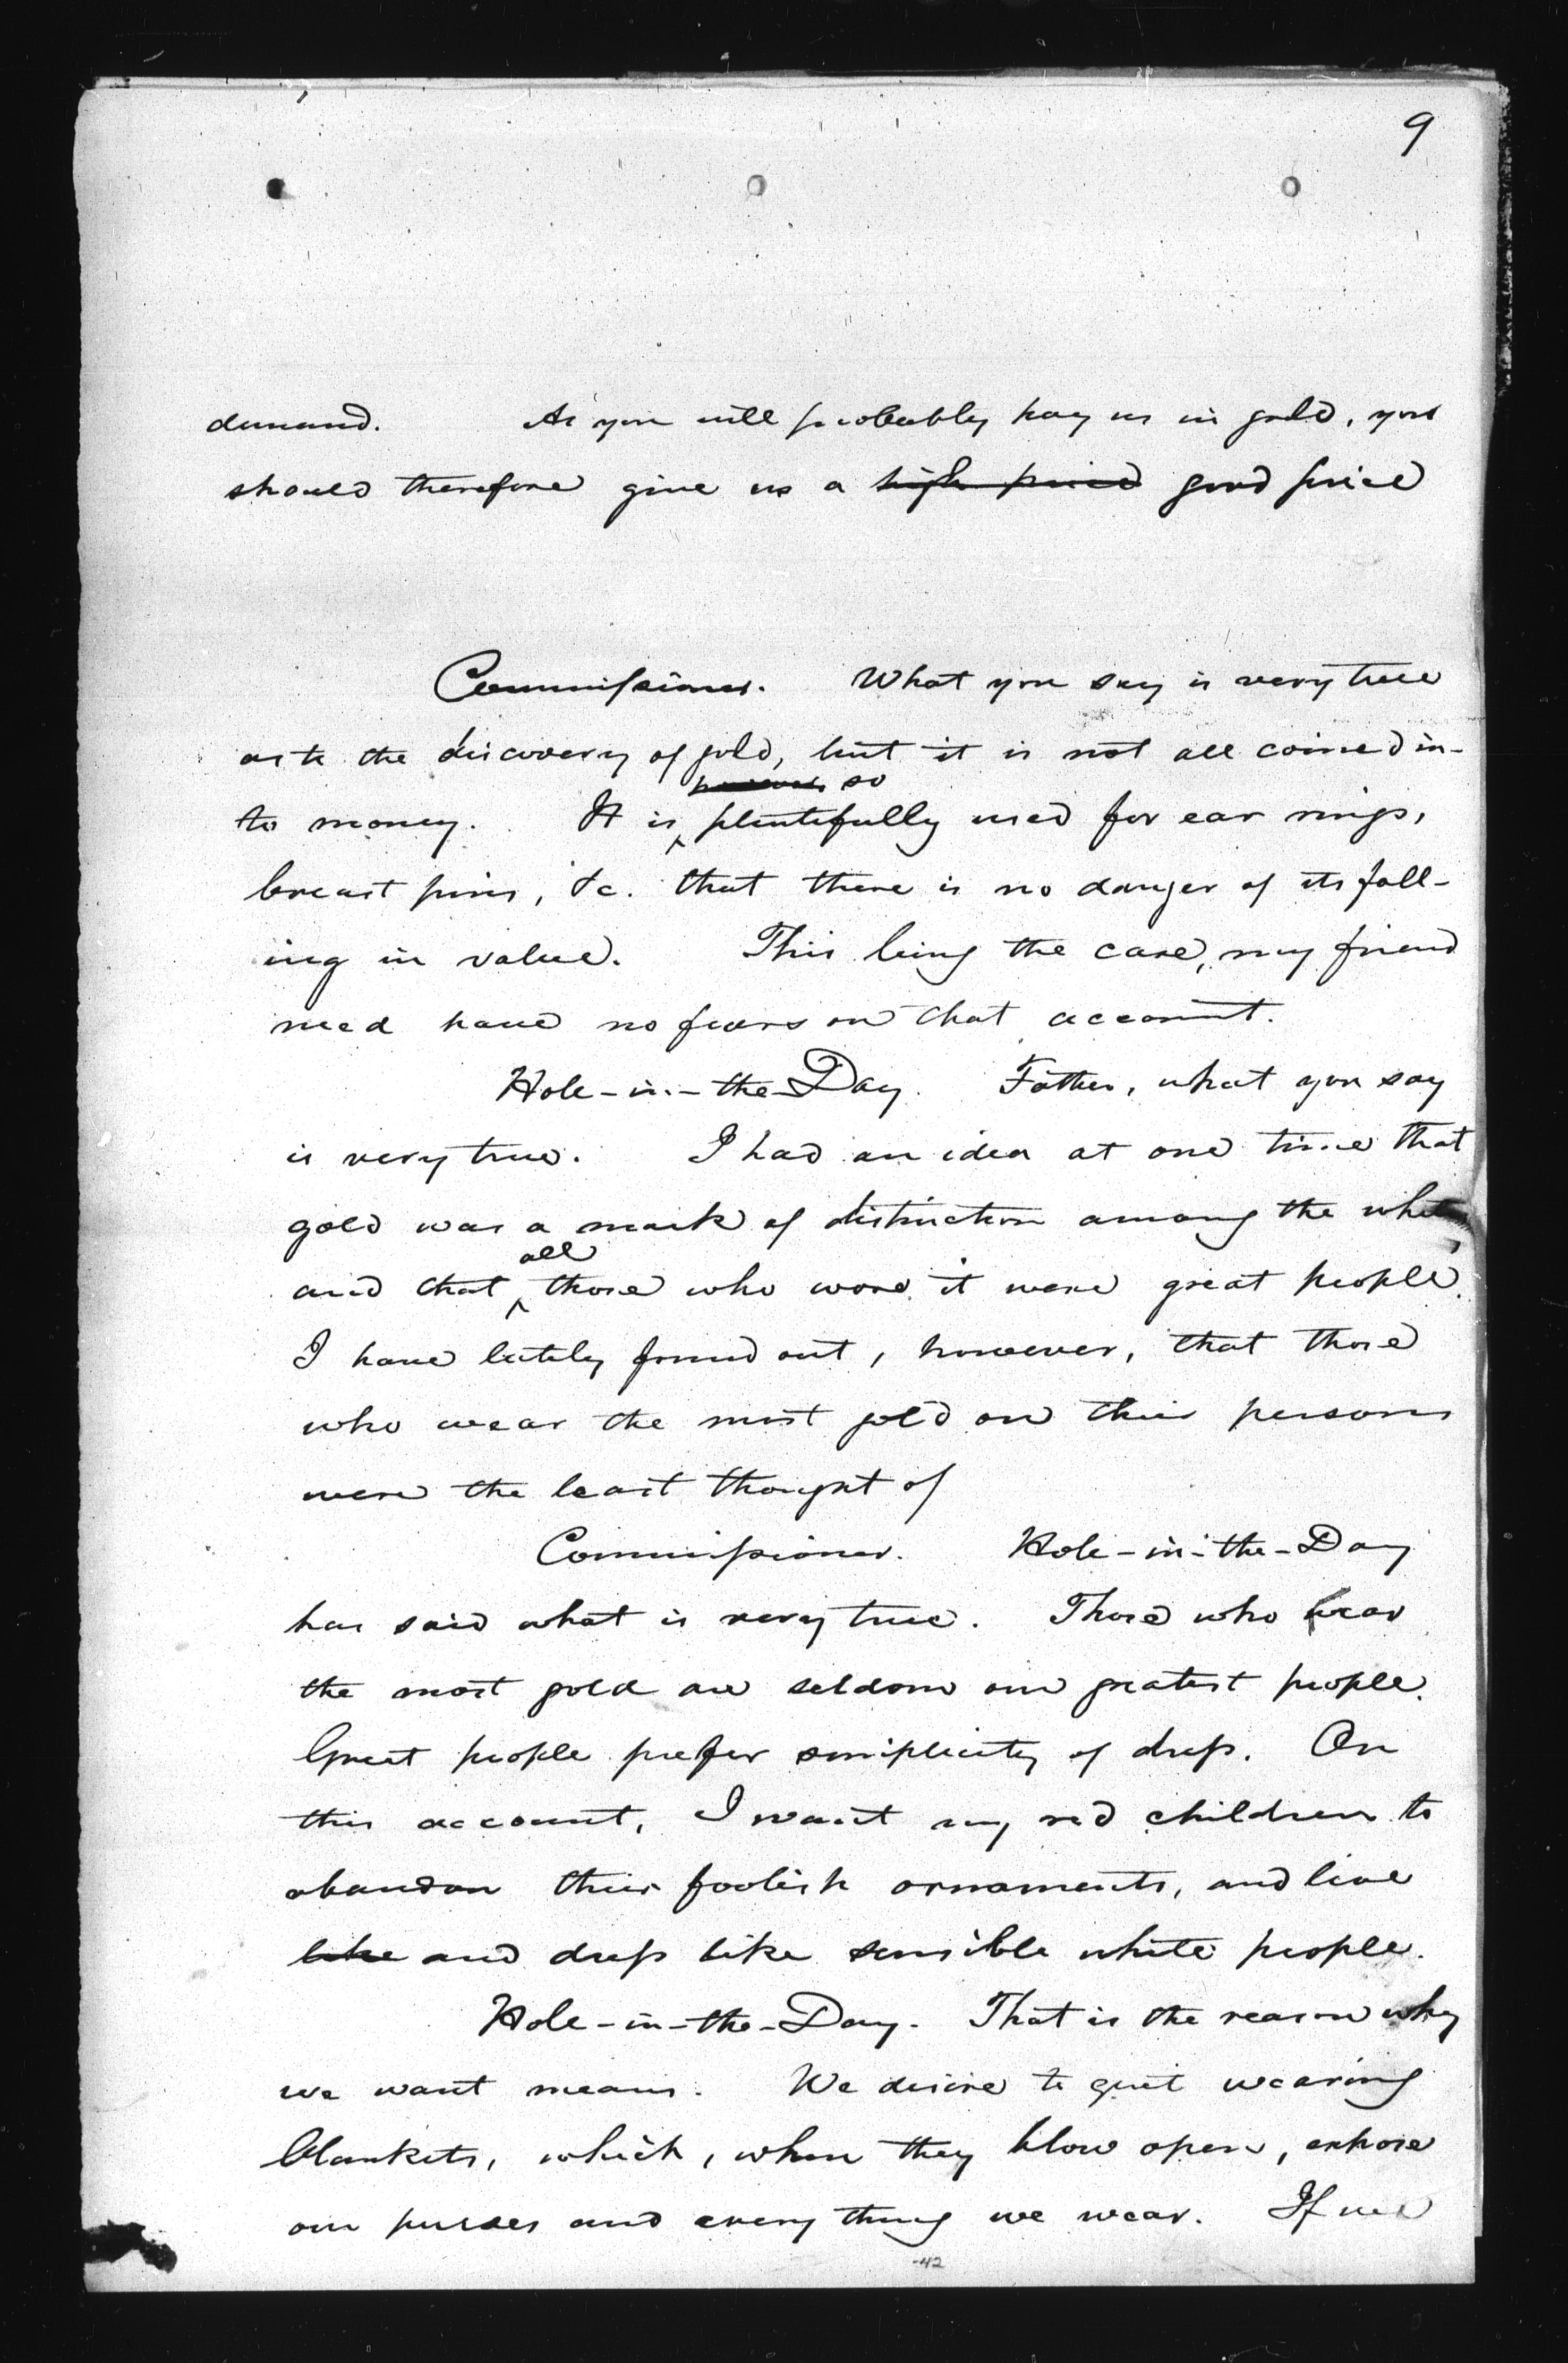 9
demand. As you will probably pay us in gold, you
should therefore give us a high price good price
Commissioner. What you say is very true
as to the discovery of gold, but it is not all coined in-
so
to money. It is plentifully used for ear rings,
breast pins, &c. that there is no danger of its fall-
ing in value. This being the case, my friend
need have no fears on that account.
Hole-in-the-Day. Father, what you say
is very true. I had an idea at one time that
gold was a mark of distinction among the whites,
all
and that those who wore it were great people.
I have lately found out, however, that those
who wear the most gold on their persons
were the least thought of
Commissioner. Hole-in-the-Day
has said what is very true. Those who wear
the most gold are seldom our greatest people.
Great people prefer simplicity of dress. On
this account, I want my red children to
abandon their foolish ornaments, and live
like and dress like sensible white people.
Hole-in-the-Day. That is the reason why
we want means. We desire to quit wearing
blankets, which, when they blow open, expose
our purses and every thing we wear. If we
-42